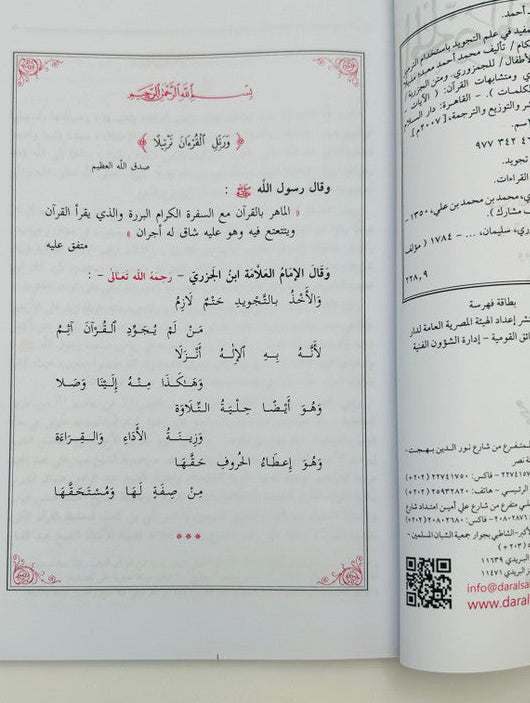 بسم الله الرحمن الرحيم
﴿ وَرَتِّلِ ٱلْقُرْءَانَ تَرْتِيلًا ﴾
صدق الله العظيم
وقال رسول الله ﷺ :
« الماهر بالقرآن مع السفرة الكرام البررة والذي يقرأ القرآن
ويتتعتع فيه وهو عليه شاق له أجران »
متفق عليه
وَقَالَ الإمَامُ العَلَّامَة ابنُ الجَزريّ – رَحِمَهُ الله تَعَالَى - :
وَالأَخْذُ بـالتَّجْويدِ حَتْمٌ لَازِمُ
مَنْ لَمْ يُجَوِّدِ القُـرْآنَ آثِـمُ
لأَنَّـهُ بِـهِ الإلَـهُ أَنْـزَلَا
وَهَـكَـذَا مِنْـهُ إِلَيْنَـا وَصَـلا
وَهُـوَ أَيْـضًا حِلْيَةُ التِّـلَاوَةِ
وَزِينَةُ الأَدَاءِ وَالقِـرَاءَةِ
وَهُوَ إعْطَاءُ الحُروفِ حَقَّـهَا
مِنْ صِفَةٍ لَهَا وَمُسْتَحَقَّـهَا
***
أحمد.
مفيد في علم التجويد باستخدام الترميز
تأليف محمد أحمد معبد؛ مذيلا
الأطفال / للجمزوري. ومتن الجزرية /
ومتشابهات القرآن: ( الآيات -
الكلمات ). - القاهرة: دار السلام
والتوزيع والترجمة، [ ٢٠٠٧م ].
سم.
٩٧٧ ٣٤٢
تجويد.
القراءات.
محمد بن محمد بن علي، ١٣٥٠ -
مشارك ).
سليمان، ... – ١٧٨٤ ( مؤلف
٢٢٨,٩
بطاقة فهرسة
إعداد الهيئة المصرية العامة لدار
القومية – إدارة الشؤون الفنية
المتفرع من شارع نور الدين بهجت -
نصر
٢٢٧٤١٧٥٠ - فاكس: ( ٢٠٢+ )
الرئيسي - هاتف: ٢٥٩٣٢٨٢٠ ( ٢٠٢+ )
متفرع من شارع علي أمين امتداد شارع
- فاكس: ( ٢٠٢+ )
الشاطبي بجوار جمعية الشبان المسلمين -
البريدي ١١٦٣٩
البريدي ١١٤٧١
info@daralsa
www.daral